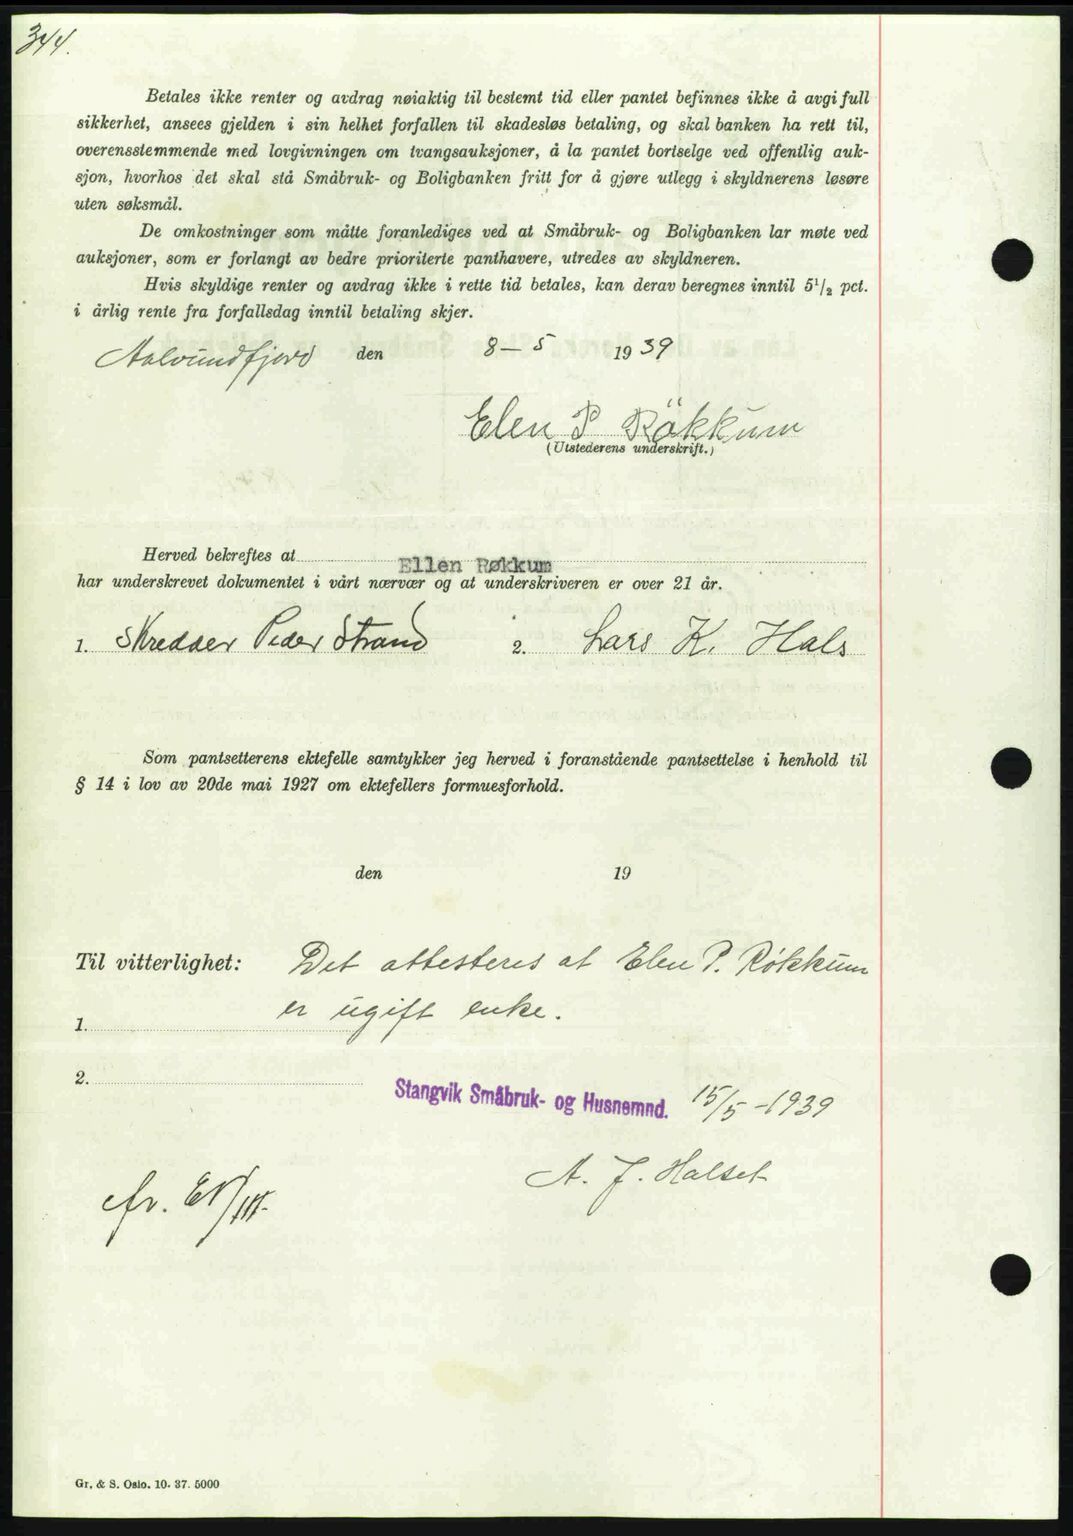 344.
Betales ikke renter og avdrag nøiaktig til bestemt tid eller pantet befinnes ikke å avgi full
sikkerhet, ansees gjelden i sin helhet forfallen til skadesløs betaling, og skal banken ha rett til,
overensstemmende med lovgivningen om tvangsauksjoner, å la pantet bortselge ved offentlig auk-
sjon, hvorhos det skal stå Småbruk- og Boligbanken fritt for å gjøre utlegg i skyldnerens løsøre
uten søksmål.
De omkostninger som måtte foranlediges ved at Småbruk- og Boligbanken lar møte ved
auksjoner, som er forlangt av bedre prioriterte panthavere, utredes av skyldneren.
Hvis skyldige renter og avdrag ikke i rette tid betales, kan derav beregnes inntil 5½ pct.
i årlig rente fra forfallsdag inntil betaling skjer.
Aalvundfjord den 8-5 1939
Elen P Rökkum
(Utstederens underskrift.)
Herved bekreftes at Ellen Røkkum
har underskrevet dokumentet i vårt nærvær og at underskriveren er over 21 år.
1. Skredder Peder Strand 2. Lars K. Hals
Som pantsetterens ektefelle samtykker jeg herved i foranstående pantsettelse i henhold til
§ 14 i lov av 20de mai 1927 om ektefellers formuesforhold.
den 19
Til vitterlighet: Det attesteres at Elen P. Røkkum
er ugift enke.
1.
2.
Stangvik Småbruk- og Husnemnd. 15/5-1939
A. J. Halset
Gr. & S. Oslo. 10. 37. 5000